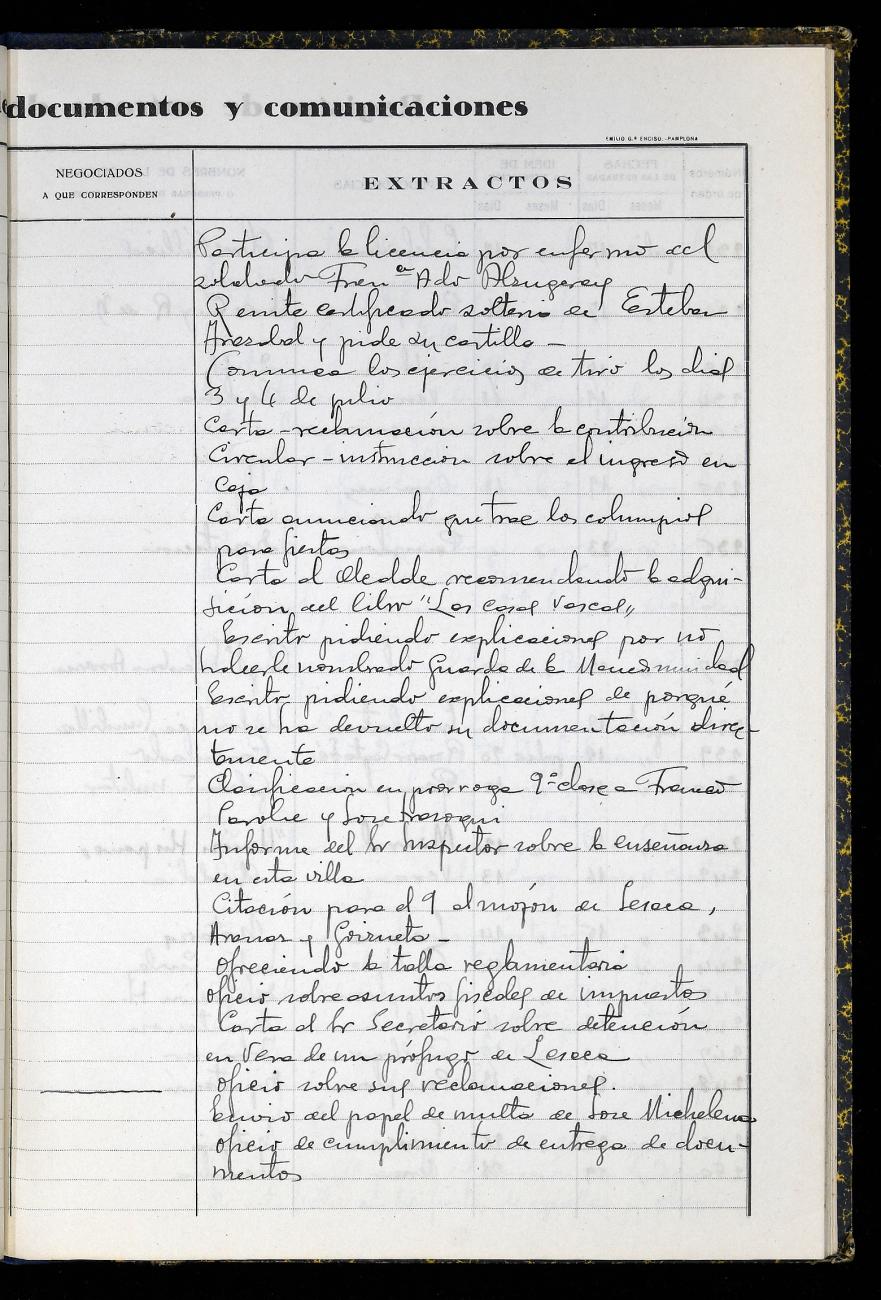 documentos y comunicaciones
EMILIO G.ª ENCISO.-PAMPLONA
NEGOCIADOS
A QUE CORRESPONDEN
EXTRACTOS
Participa la licencia por enfermo del
soldado Fran.co Ado Alzugaray
Remite certificado solteria de Esteban
y pide su cartilla -
Comunica los ejercicios de tiro los dias
3 y 4 de julio
Carta-reclamación sobre la contribución
Circular-instrucción sobre el ingreso en
Caja
Carta anunciando que trae los columpios
para fiestas
Carta al Alcalde recomendando la adqui-
sición del libro "Las casas Vascas"
Escrito pidiendo explicaciones por no
haberle nombrado Guarda de la Mancomunidad
Escrito pidiendo explicaciones de porqué
no se ha devuelto su documentación direc-
tamente
Clasificacion en prorroga 1ª clase a
y Jose
Informe del Sr Inspector sobre la enseñanza
en esta villa
Citación para el 9 al mojón de Lesaca,
Aranaz y Goizueta -
Ofreciendo la talla reglamentaria
Oficio sobre asuntos fiscales de impuestos
Carta al Sr Secretario sobre detención
en Vera de un prófugo de Lesaca
Oficio sobre sus reclamaciones.
Envio del papel de multa de Jose Michelena
Oficio de cumplimiento de entrega de docu-
mentos